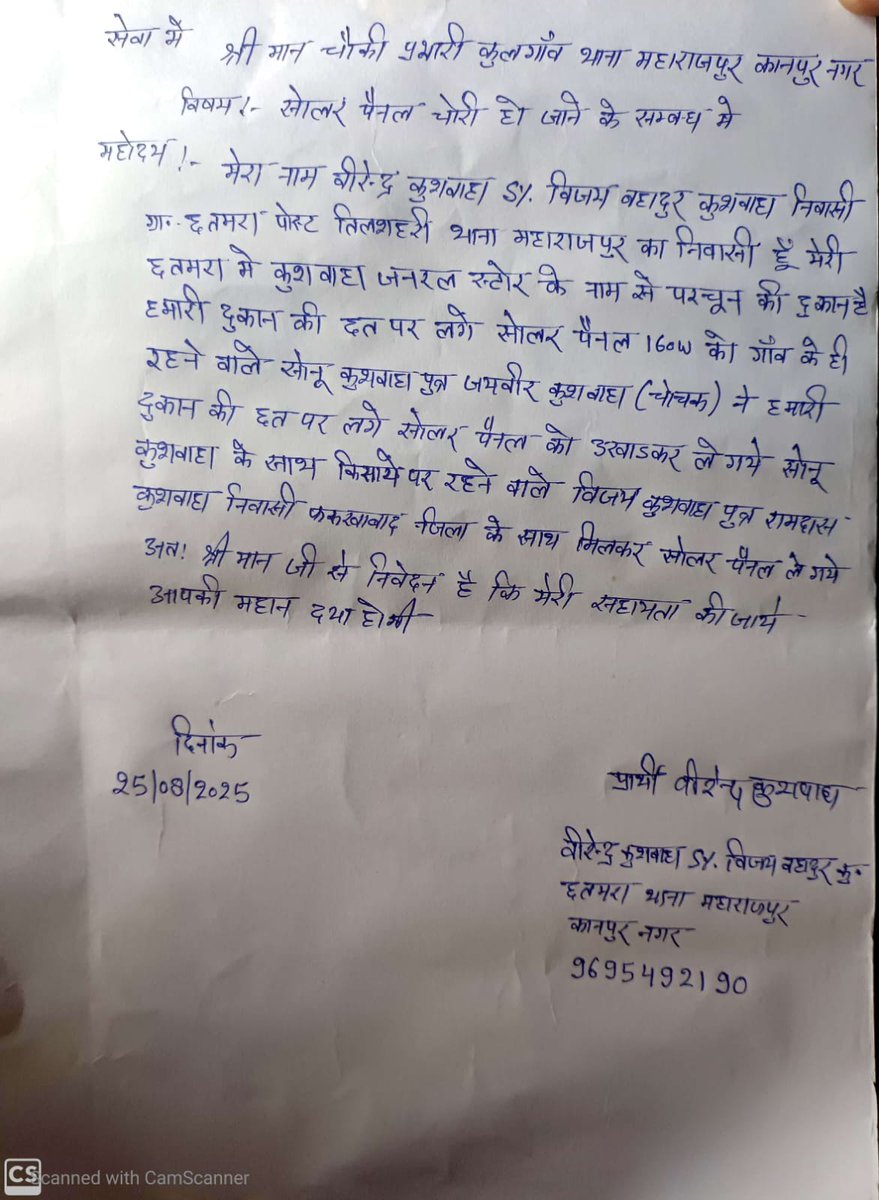 सेवा मे
श्री मान चौकी प्रभारी कुलगाँव थाना महाराजपुर कानपुर नगर
विषय :- सोलर पैनल चोरी हो जाने के सम्बन्ध मे
महोदय !- मेरा नाम वीरेन्द्र कुशवाहा S/. विजय बहादुर कुशवाहा निवासी
ग्रा.- छतमरा पोस्ट तिलशहरी थाना महाराजपुर का निवासी हूँ मेरी
छतमरा मे कुशवाहा जनरल स्टोर के नाम से परचून की दुकान है
हमारी दुकान की छत पर लगे सोलर पैनल 160W को गाँव के ही
रहने वाले सोनू कुशवाहा पुत्र जयवीर कुशवाहा (चोचक) ने हमारी
दुकान की छत पर लगे सोलर पैनल को उखाडकर ले गये सोनू
कुशवाहा के साथ किराये पर रहने वाले विजय कुशवाहा पुत्र रामदास
कुशवाहा निवासी फरूखाबाद जिला के साथ मिलकर सोलर पैनल ले गये
अतः श्री मान जी से निवेदन है कि मेरी सहायता की जाये
आपकी महान दया होगी
दिनांक
25/08/2025
प्रार्थी वीरेन्द्र कुशवाहा
वीरेन्द्र कुशवाहा S/. विजय बहादुर कु.
छतमरा थाना महाराजपुर
कानपुर नगर
9695492190
CS Scanned with CamScanner